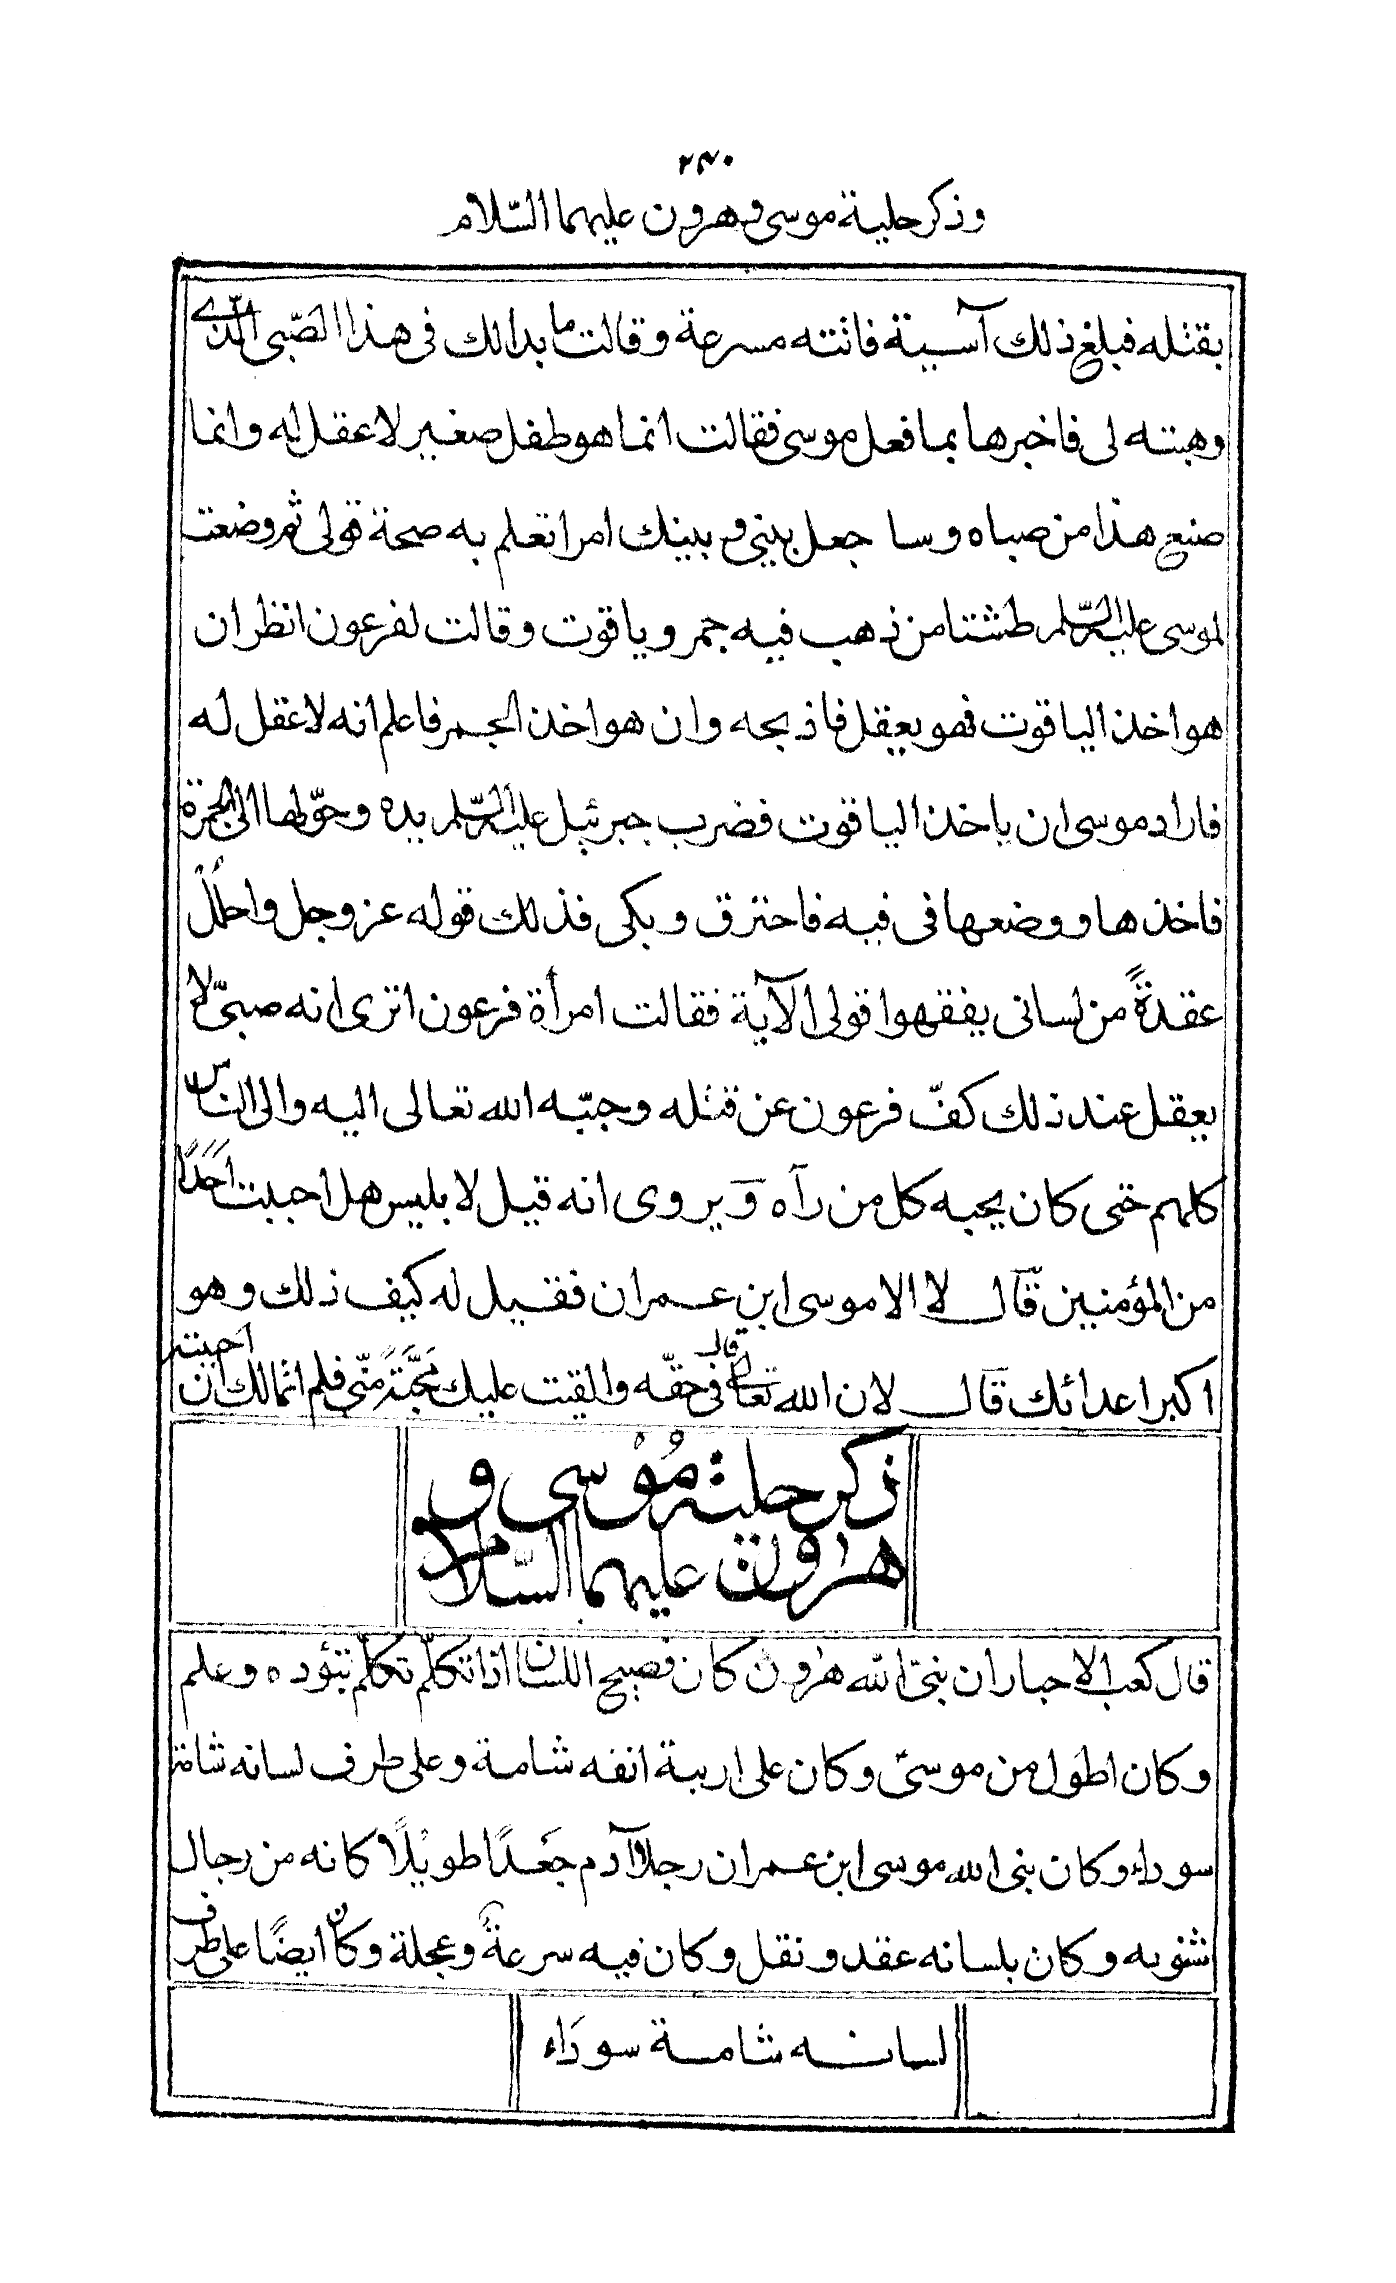 ٢٣٠
وذكر حلية موسى وهرون عليهما السّلام
بقتله فبلغ ذلك آسية فاتته مسرعة وقالت ما بدا لك فى هذا الصّبى الّذى
وهبته لى فاخبرها بما فعل موسى فقالت انما هو طفل صغير لا عقل له وانما
صنع هذا من صباه وساجعل بينى وبينك امرا تعلم به صحة قولى ثم وضعت
لموسى عليه السّلم طشتا من ذهب فيه جمر وياقوت وقالت لفرعون انظر ان
هو اخذ الياقوت فهو يعقل فاذبحه وان هو اخذ الجمر فاعلم انه لا عقل له
فاراد موسى ان ياخذ الياقوت فضرب جبرئيل عليه السّلم يده وحوّلها الى الجمرة
فاخذها ووضعها فى فيه فاحترق وبكى فذلك قوله عز وجل واحلُلْ
عقدةً من لسانى يفقهوا قولى الآية فقالت امرأة فرعون اترى انه صبىّ لا
يعقل عند ذلك كفّ فرعون عن قتله وحبّبه الله تعالى اليه والى الناس
كلهم حتى كان يحبه كل من رآه ويروى انه قيل لابليس هل احببت احَدًا
من المؤمنين قال لا الا موسى ابن عمران فقيل له كيف ذلك وهو
اكبر اعدائك قال لان الله تعالى قال فى حقّه والقيت عليك مَحَبَّةً منّى فلم اتمالك ان احببته
ذكر حلية مُوْسى و
هرون عليهما السّلام
قال كعب الاحبار ان نبىّ الله هرون كان فصيح اللسان اذا تكلّم تكلّم بتؤده وعلم
وكان اطول من موسىٰ وكان على اربية انفه شامة وعلى طرف لسانه شامة
سوداء وكان نبى الله موسى ابن عمران رجلا آدم جَعْدًا طويْلًا كانه من رجال
شنويه وكان بلسانه عقد وثقل وكان فيه سرعةٌ وعجلة وكان ايضًا على طرف
لسانه شامة سوداء